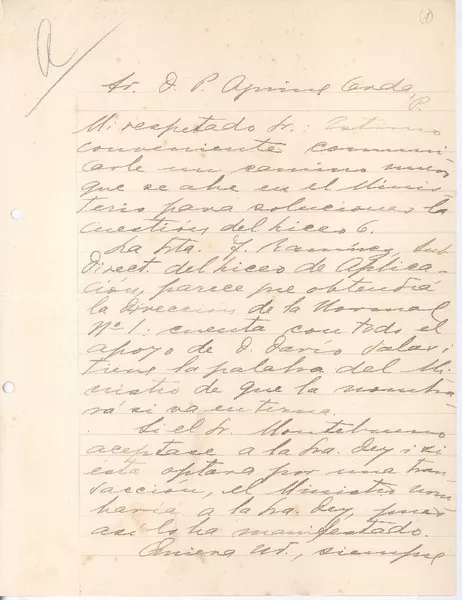 (1)
A
Sr. D. P. Aguirre Cerda,
P.
Mi respetado Sr.: Estimo
conveniente comuni
carle un camino nuevo
que se abre en el Minis
terio para solucionar la
cuestion del Liceo 6.
La Srta. J. Ramírez, Sub
Direct. del Liceo de Aplica-
ción, parece que obtendrá
la Direccion de la Normal
Nº 1: cuenta con todo el
apoyo de D. Darío Salas i
tiene la palabra del Mi
nistro de que la nombra
rá si va en terna.
Si el Sr. Montebruno
aceptase a la Sra. Dey i si
esta optara por una tran
saccion, el Ministro nom
braria a la Sra. Dey, pues
así lo ha manifestado.
Quiera Ud., siempre